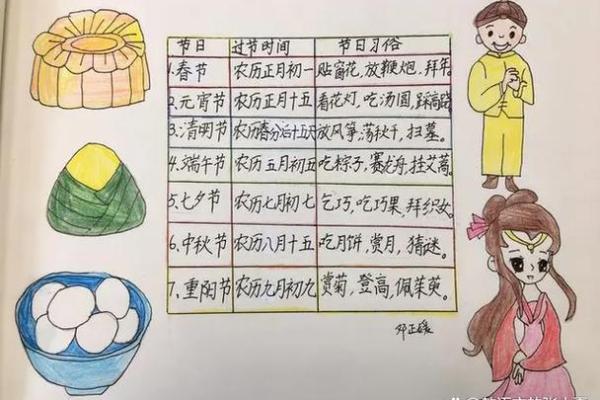 节日 过节时间 节日习俗
1.春节 农历正月初一 贴窗花，放鞭炮，拜年。
2.元宵节 农历正月十五 看花灯，吃汤圆，踩高跷
3.清明节 农历春分后十五天 放风筝，荡秋千，扫墓。
4.端午节 农历五月初五 吃粽子，赛龙舟，挂艾蒿。
5.七夕节 农历七月初七 乞巧，吃巧果，拜织女。
6.中秋节 农历八月十五 吃月饼，赏月，猜谜。
7.重阳节 农历九月初九 赏菊，登高，佩茱萸。